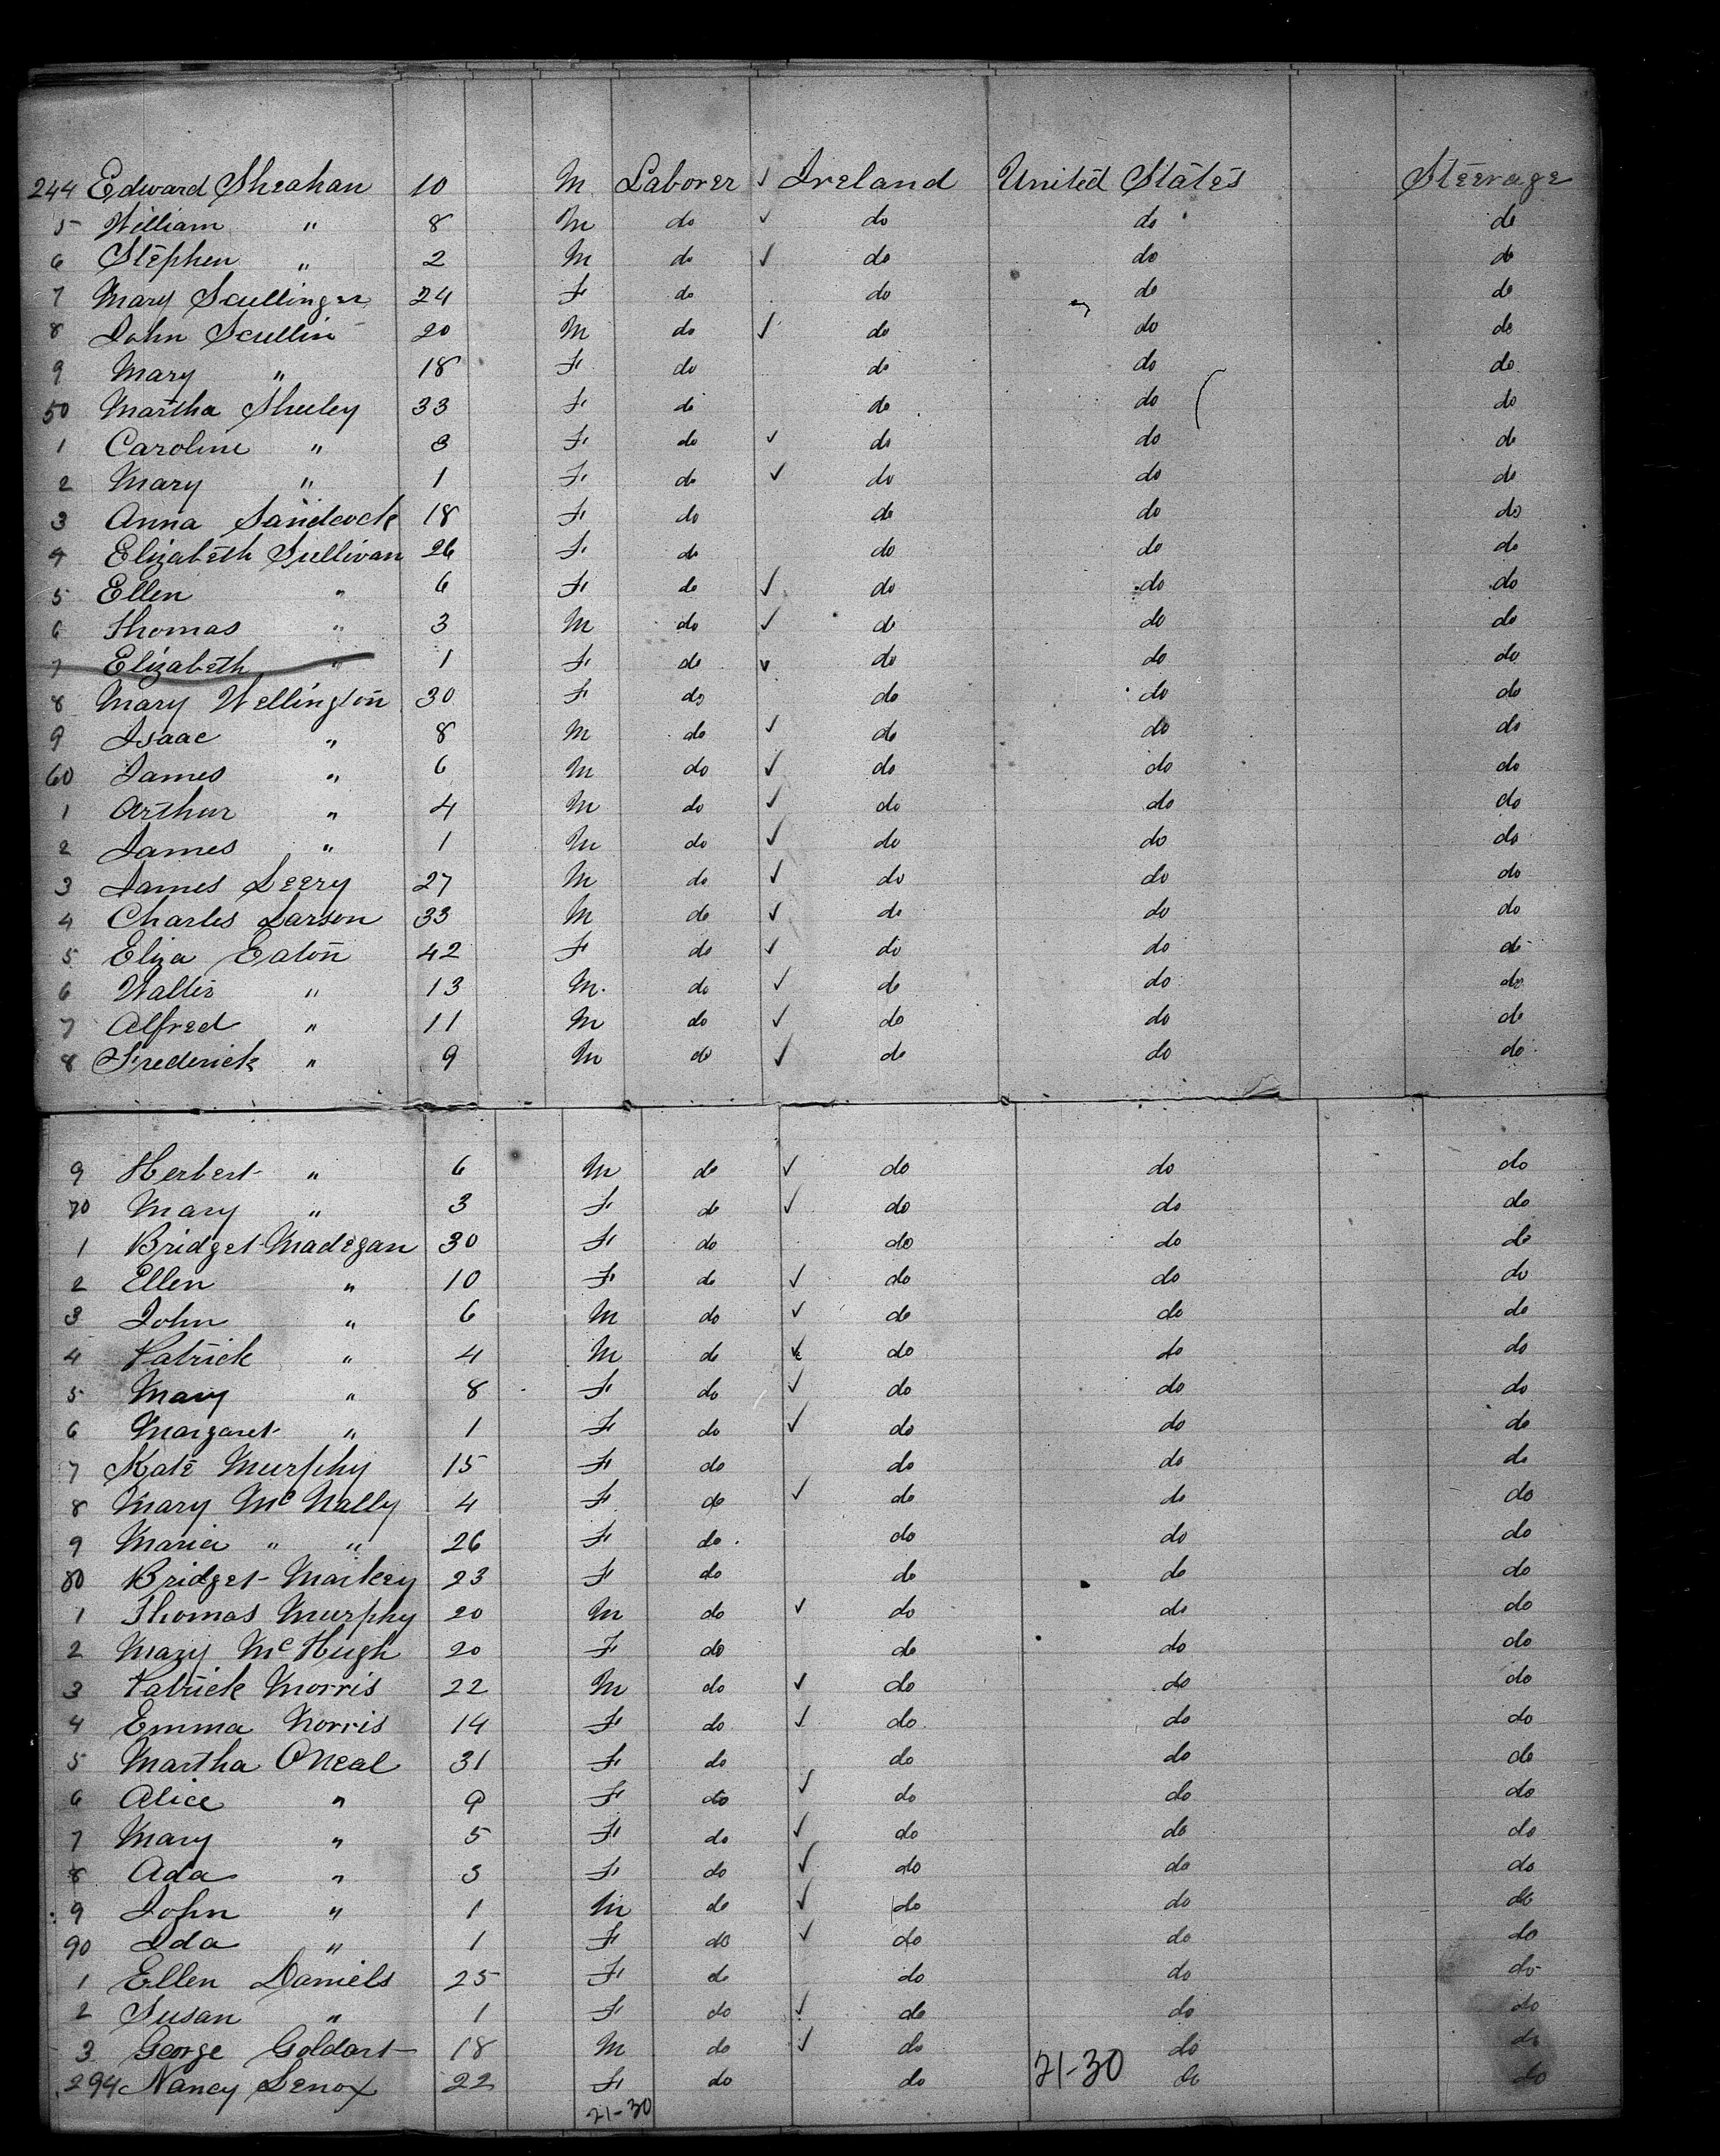 244 Edward Sheahan 10 M Laborer ✓ Ireland United States Steerage
5 William " 8 M do ✓ do do do
6 Stephen " 2 M do ✓ do do do
7 Mary Scullinger 24 F do do do do
8 John Scullin 20 M do ✓ do do do
9 Mary " 18 F do do do do
50 Martha Sheeley 33 F do do do do
1 Caroline " 3 F do ✓ do do do
2 Mary " 1 F do ✓ do do do
3 Anna Sandcock 18 F do do do do
4 Elizabeth Sullivan 26 F do do do do
5 Ellen " 6 F do ✓ do do do
6 Thomas " 3 M do ✓ do do do
7 Elizabeth " 1 F do ✓ do do do
8 Mary Wellington 30 F do do do do
9 Isaac " 8 M do ✓ do do do
60 James " 6 M do ✓ do do do
1 Arthur " 4 M do ✓ do do do
2 James " 1 M do ✓ do do do
3 James Leery 27 M do ✓ do do do
4 Charles Larson 33 M do ✓ do do do
5 Eliza Eaton 42 F do ✓ do do do
6 Walter " 13 M. do ✓ do do do
7 Alfred " 11 M do ✓ do do do
8 Frederick " 9 M do ✓ do do do
9 Herbert " 6 M do ✓ do do do
70 Mary " 3 F do ✓ do do do
1 Bridget Madegan 30 F do do do do
2 Ellen " 10 F do ✓ do do do
3 John " 6 M do ✓ do do do
4 Patrick " 4 M do ✓ do do do
5 Mary " 8 F do ✓ do do do
6 Margaret " 1 F do ✓ do do do
7 Kate Murphy 15 F do do do do
8 Mary McNally 4 F do ✓ do do do
9 Maria " " 26 F do do do do
80 Bridget Markey 23 F do do do do
1 Thomas Murphy 20 M do ✓ do do do
2 Mary McHugh 20 F do do do do
3 Patrick Morris 22 M do ✓ do do do
4 Emma Norris 14 F do ✓ do do do
5 Martha ONeal 31 F do do do do
6 Alice " 9 F do ✓ do do do
7 Mary " 5 F do ✓ do do do
8 Ada " 3 F do ✓ do do do
9 John " 1 M do ✓ do do do
90 Ida " 1 F do ✓ do do do
1 Ellen Daniels 25 F do do do do
2 Susan " 1 F do ✓ do do do
3 George Goldart 18 M do ✓ do do do
294 Nancy Lenox 22 F do do 21-30 do do
21-30